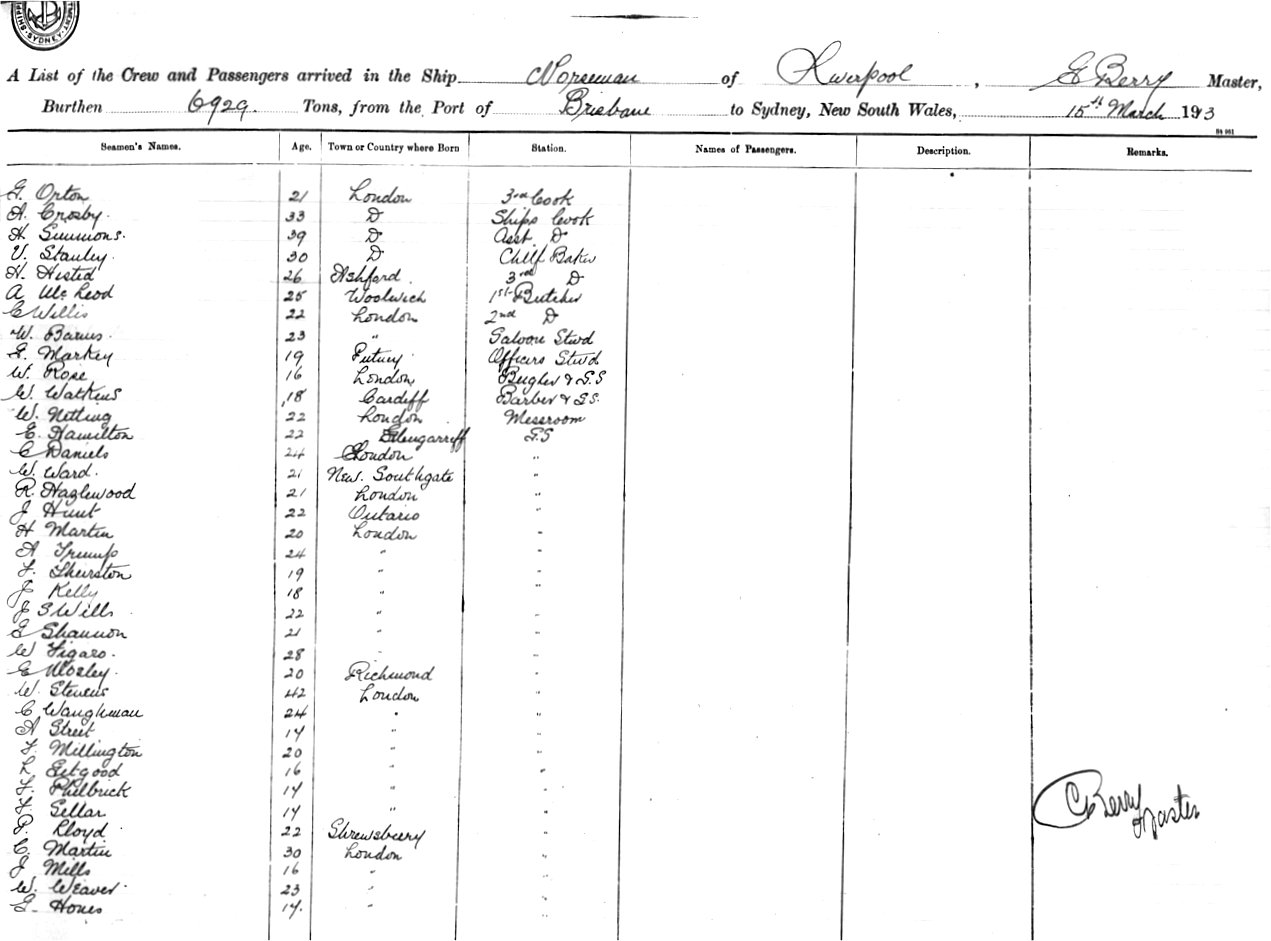 SYDNEY
A List of the Crew and Passengers arrived in the Ship Norseman of Liverpool, E Berry Master,
Burthen 6929. Tons, from the Port of Brisbane to Sydney, New South Wales, 15th March 1913
Seamen's Names. Age. Town or Country where Born Station. Names of Passengers. Description. Remarks.
G. Orton 21 London 3rd Cook
A. Crosby. 33 D Ships Cook
H. Simmons. 39 D Asst. D
V. Stanley. 30 D Chief Baker
H. Histed 26 Ashford. 3rd D
A McLeod 25 Woolwich 1st Butcher
C Willis 22 London 2nd D
W. Barns. 23 " Saloon Stwd
G. Markey 19 Putney. Officers Stwd
W. Rose 16 London Bugler & G.S
W. Watkins 18 Cardiff Barber & G.S.
W. Nitting 22 London Messroom
E. Hamilton 22 Glengarriff G.S
C Daniels 24 London "
W. Ward. 21 New. Southgate "
R. Hazlewood 21 London "
J Hunt 22 Ontario "
H Martin 20 London "
A Trump 24 " "
F. Thurston 19 " "
J Kelly 18 " "
J S Wills 22 " "
E Shannon 21 " "
W Figaro. 28 " "
E Mosley. 20 Richmond "
W. Stevens 42 London "
C Waughman 24 " "
A Street 17 " "
F. Millington 20 " "
Letgood 16 " "
F. Philbrick 17 " "
F. Sellar 17 " "
P. Lloyd 22 Shrewsbury "
C. Martin 30 London "
J Mills 16 " "
W. Weaver. 23 " "
G. Hones 17. " "
E Berry
Master